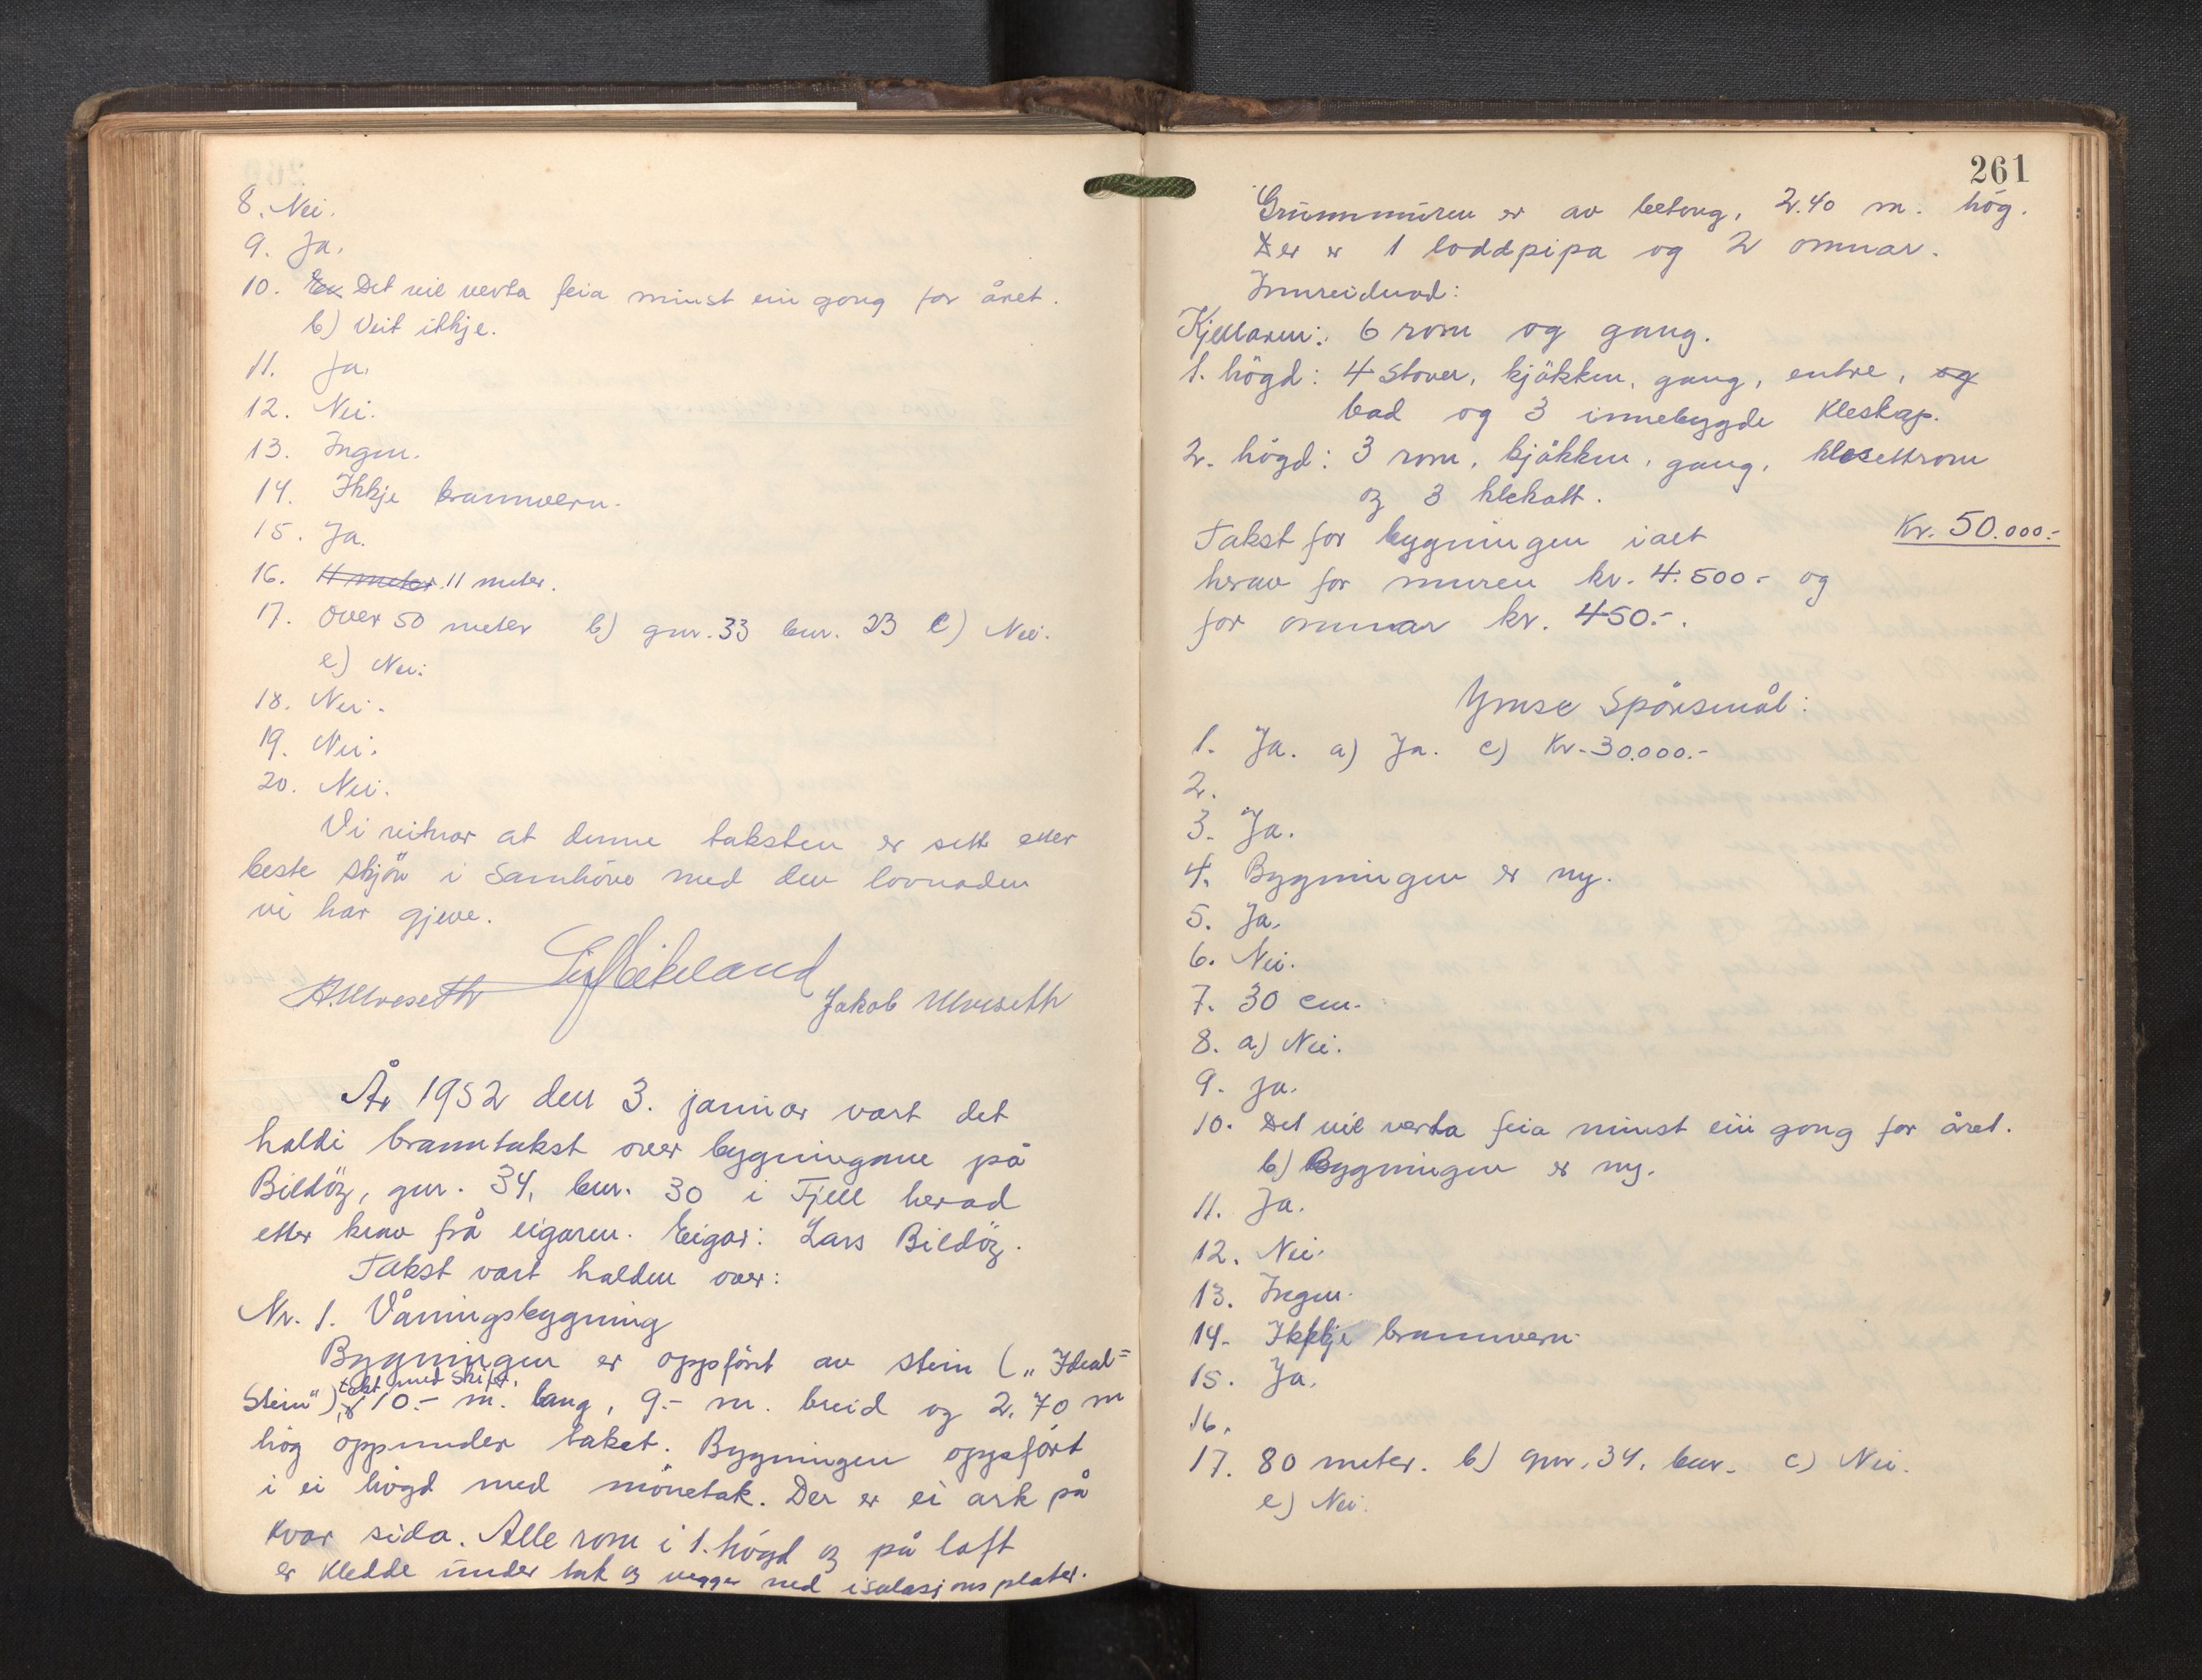 8. Nei.
9. Ja.
10. Ek Det vil verta feia minst ein gong for året.
b) Veit ikkje.
11. Ja.
12. Nei.
13. Ingen.
14. Ikkje brannvern.
15. Ja.
16. 11 meter. 11 meter.
17. over 50 meter b) gnr. 33 bnr. 23 c) Nei.
e) Nei.
18. Nei.
19. Nei.
20. Nei.
Vi vitnar at denne taksten er sett etter
beste skjön i samhöve med den lovnaden
vi har gjeve.
Jakob Ulveseth
År 1952 den 3. januar vart det
haldi branntakst over bygningane på
Bildöy, gnr. 34, bnr. 30 i Fjell herad
etter krav frå eigaren. Eigar: Lars Bildöy.
Takst vart halden over:
Nr. 1. Våningsbygning
Bygningen er oppfört av stein („Ideal=
tekt med skifer,
Stein") er 10.- m. lang, 9.- m. breid og 2.70 m
hög oppunder taket. Bygningen oppfört
i ei högd med mönetak. Der er ei ark på
kvar sida. Alle rom i 1. högd og på loft
er kledde under tak og vegger med isolasjonsplater.
261
Grunnmuren er av betong, 2.40 m. hög.
Der er 1 loddpipa og 2 omnar.
Innreidnad:
Kjellaren: 6 rom og gang.
1. högd: 4 stover, kjökken, gang, entre, og
bad og 3 innebygde kleskap.
2. högd: 3 rom, kjökken, gang, klosettrom
og 3 klekott.
Takst for bygningen ialt Kr. 50.000.-
herav for muren kr. 4.500.- og
for omnar kr. 450.-.
Ymse Spörsmål:
1. Ja. a) Ja. c) Kr. 30.000.-
2.
3. Ja.
4. Bygningen er ny.
5. Ja.
6. Nei.
7. 30 cm.
8. a) Nei.
9. Ja.
10. Det vil verta feia minst ein gong for året.
b) Bygningen er ny.
11. Ja.
12. Nei.
13. Ingen.
14. Ikkje brannvern.
15. Ja.
16.
17. 80 meter. b) gnr. 34, bnr. c) Nei.
e) Nei.